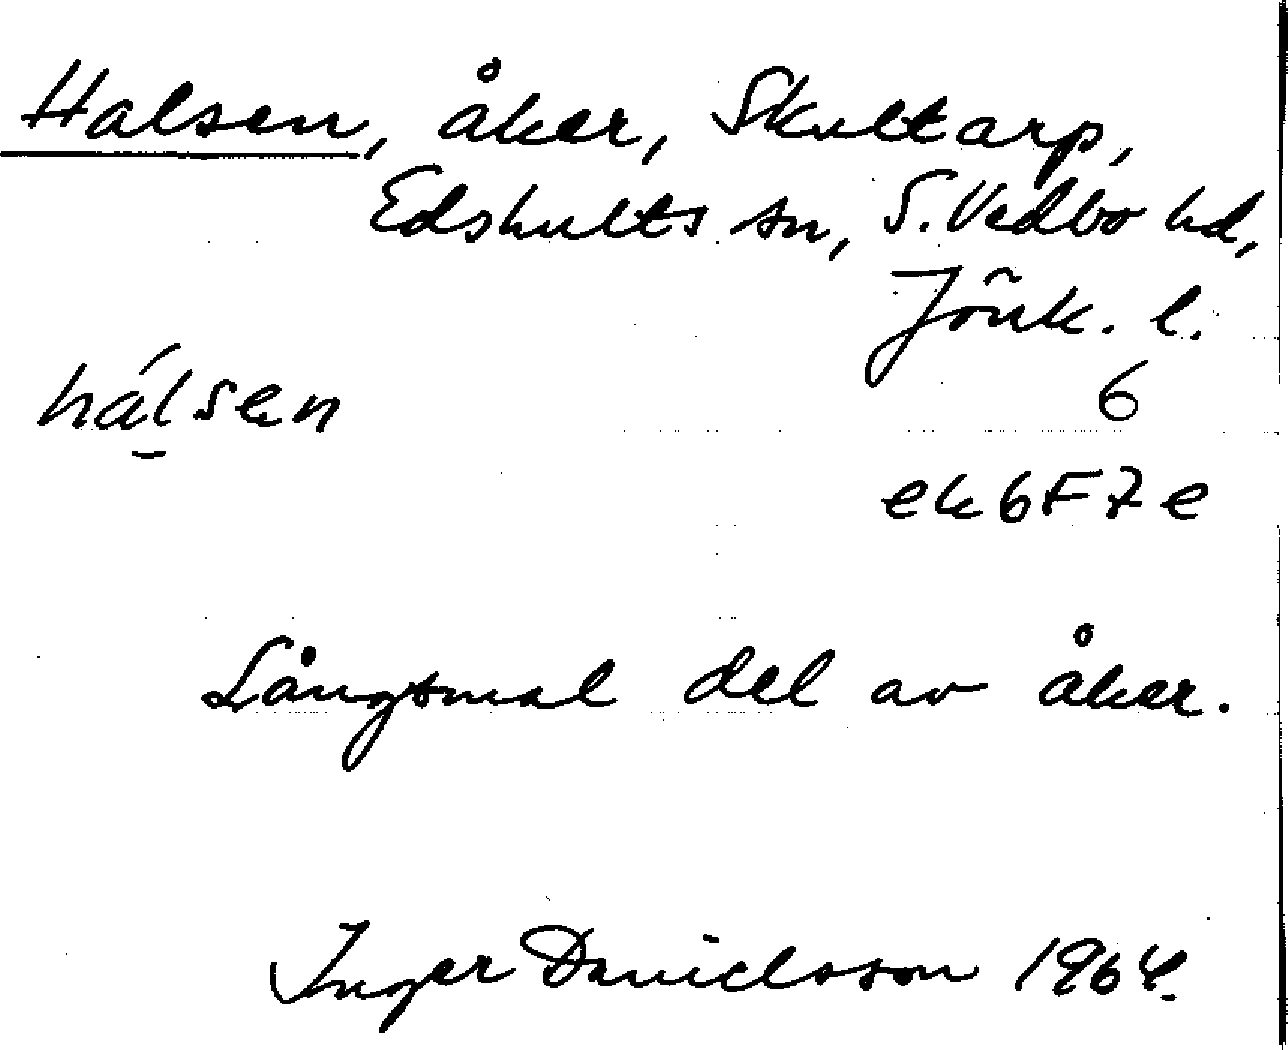 Halsen, åker, Skultarp,
Edshults sn, S. Vedbo hd,
Jönk. l.
hálsen 6
ek 6F7e
Långsmal del av åker.
Inger Danielsson 1964.